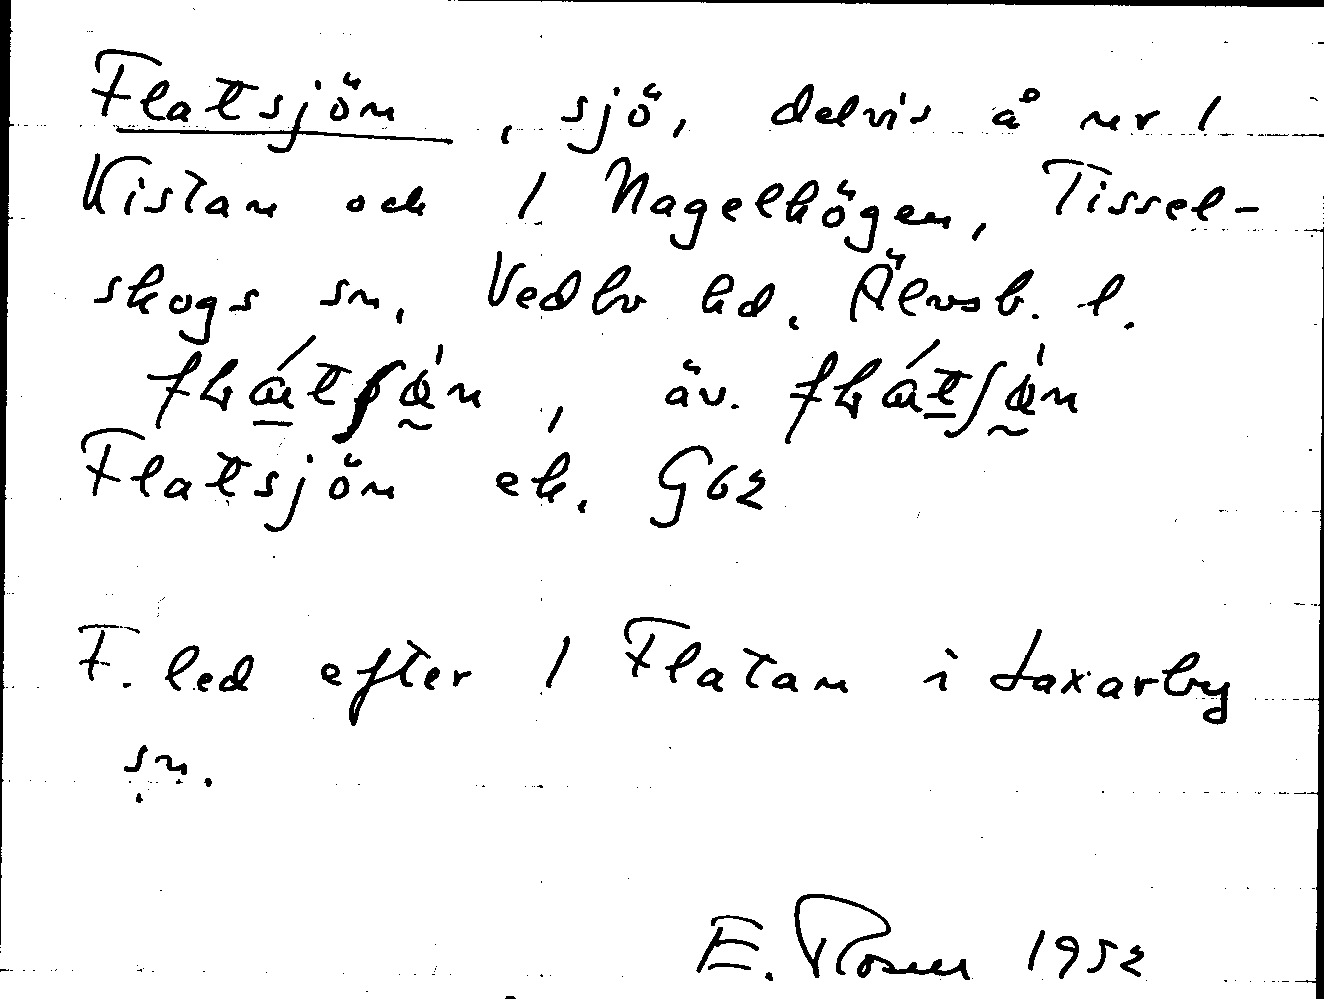 Flatsjön, sjö, delvis å nr 1
Kistan och 1 Nagelhögen, Tissel-
skogs sn, Vedbo hd, Älvsb. l.
äv.
Flatsjön ek. G62
F. led efter 1 Flatan i Laxarby
sn.
E. Rosell 1952